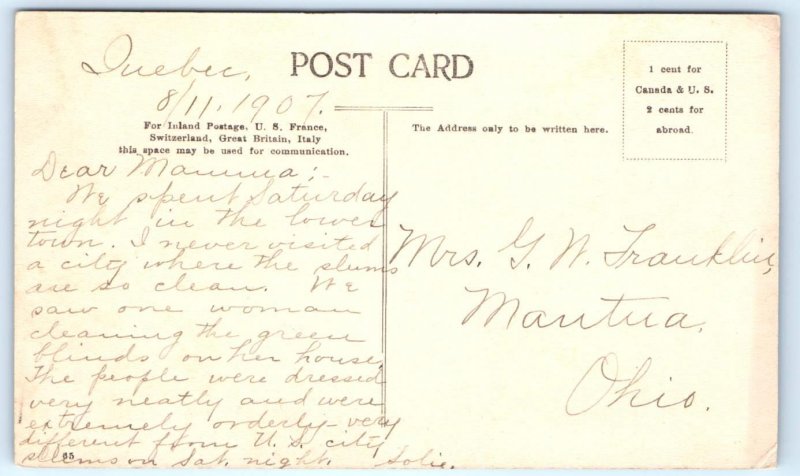 Quebec,
8/11, 1907.
POST CARD
1 cent for
Canada & U. S.
2 cents for
abroad.
For Inland Postage, U. S. France,
Switzerland, Great Britain, Italy
this space may be used for communication.
The Address only to be written here.
Dear Mamma;-
We spent Saturday
night in the lower
town. I never visited
a city where the slums
are so clean. We
saw one woman
cleaning the green
blinds on her house.
The people were dressed
very neatly and were
extremely orderly - very
different from U. S. city
slums on Sat. night. Solie.
65
Mrs. G. W. Franklin,
Mantua,
Ohio.